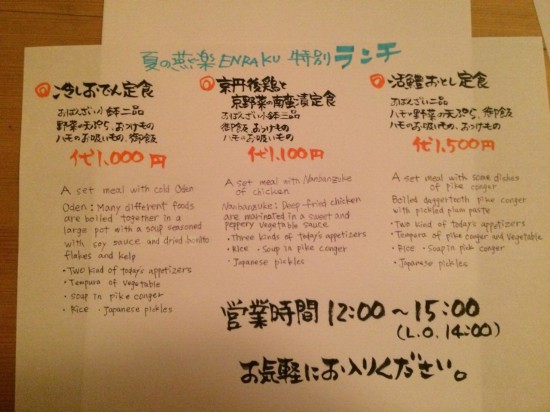 夏の燕楽ENRAKU 特別ランチ
冷しおでん定食
おばんざい小鉢二品
野菜の天ぷら、おつけもの
ハモのお吸いもの、御飯
代1,000円
A set meal with cold Oden
Oden : Many different foods
are boiled together in a
large pot with a soup seasoned
with soy sauce and dried bonito
flakes and kelp
・Two kind of today's appetizers
・Tempura of vegetable
・Soup in pike conger
・Rice ・Japanese pickles
京丹後鶏と
京野菜の南蛮漬定食
おばんざい小鉢三品
御飯、おつけもの
ハモのお吸いもの
代1,100円
A set meal with Nanbanzuke
of chicken
Nanbanzuke : Deep-fried chicken
are marinated in a sweet and
peppery vegetable sauce
・Three kinds of today's appetizers
・Rice ・Soup in pike conger
・Japanese pickles
活鱧おとし定食
おばんざい二品
ハモと野菜の天ぷら、御飯
ハモのお吸いもの、おつけもの
代1,500円
A set meal with some dishes
of pike conger
Boiled daggertooth pike conger
with pickled plum paste
・Two kind of today's appetizers
・Tempura of pike conger and vegetable
・Rice ・Soup in pike conger
・Japanese pickles
営業時間 12:00～15:00
(L.O. 14:00)
お気軽にお入りください。